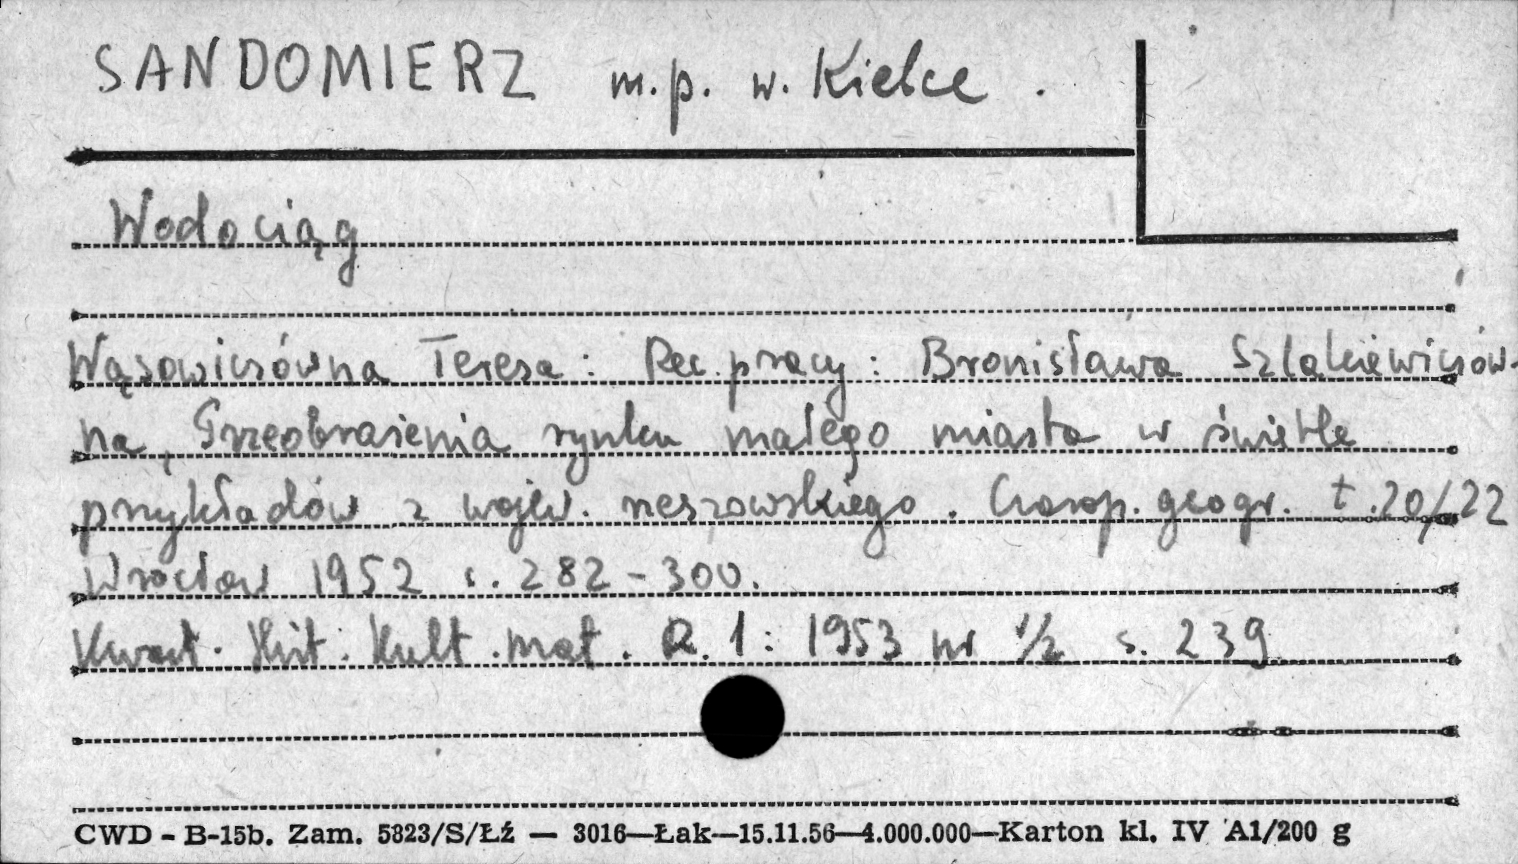 SANDOMIERZ m.p. w. Kielce.
Wodociąg
Wąsowiczówna Teresa: Rec. pracy: Bronisława Szlakiewiczów-
na, Przeobrażenia rynku małego miasta w świetle
przykładów z wojew. rzeszowskiego. Czasop. geogr. t.20/22
Wrocław 1952 s. 282-300.
Kwart. Hist. Kult. mat. R. 1: 1953 nr 1/2 s. 239
CWD - B-15b. Zam. 5823/S/Łź — 3016—Łak—15.11.56—4.000.000—Karton kl. IV A1/200 g